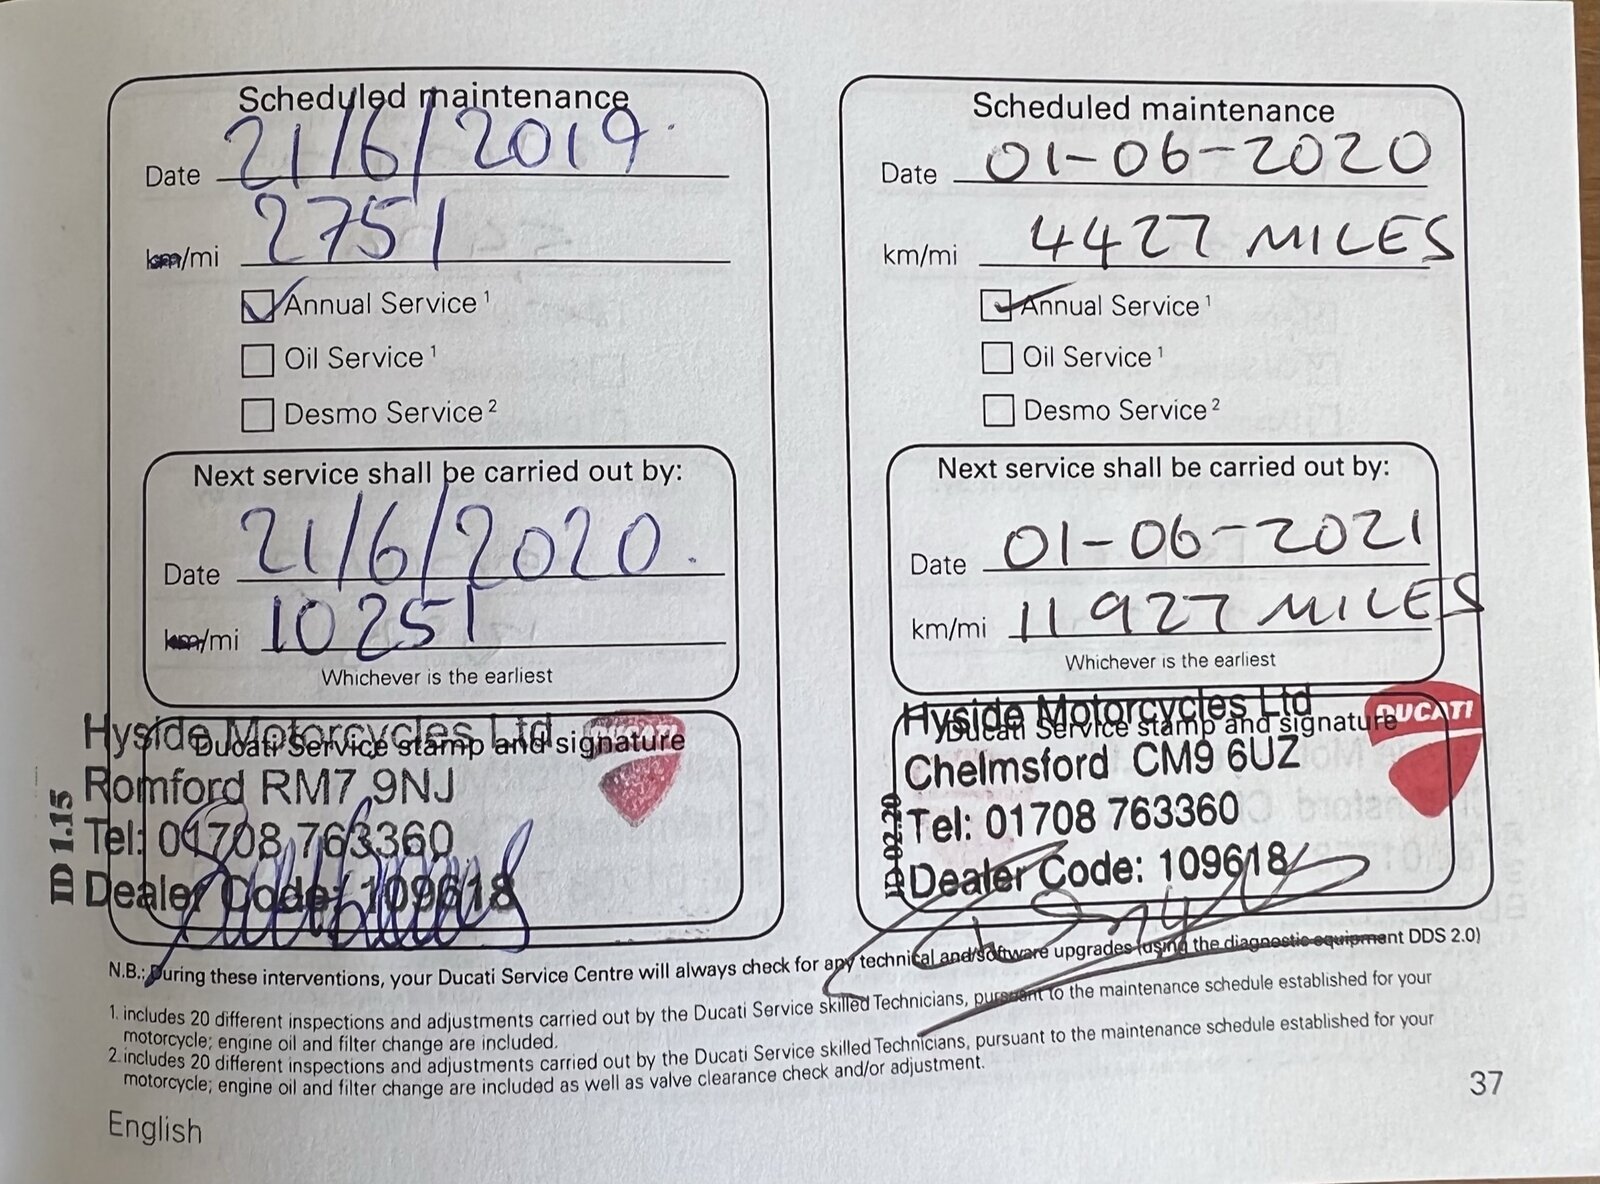 Scheduled maintenance
Date 21/6/2019.
km/mi 2751
Annual Service 1
Oil Service 1
Desmo Service 2
Next service shall be carried out by:
Date 21/6/2020.
km/mi 10251
Whichever is the earliest
Ducati Service stamp and signature
Hyside Motorcycles Ltd
DUCATI
Romford RM7 9NJ
Tel: 01708 763360
Dealer Code: 109618
ID 1.15
Scheduled maintenance
Date 01-06-2020
km/mi 4427 MILES
Annual Service 1
Oil Service 1
Desmo Service 2
Next service shall be carried out by:
Date 01-06-2021
km/mi 11927 MILES
Whichever is the earliest
Ducati Service stamp and signature
Hyside Motorcycles Ltd
DUCATI
Chelmsford CM9 6UZ
Tel: 01708 763360
Dealer Code: 109618
ID 02.20
N.B.: During these interventions, your Ducati Service Centre will always check for any technical and/software upgrades (using the diagnostic equipment DDS 2.0)
1. includes 20 different inspections and adjustments carried out by the Ducati Service skilled Technicians, pursuant to the maintenance schedule established for your
motorcycle; engine oil and filter change are included.
2. includes 20 different inspections and adjustments carried out by the Ducati Service skilled Technicians, pursuant to the maintenance schedule established for your
motorcycle; engine oil and filter change are included as well as valve clearance check and/or adjustment.
37
English